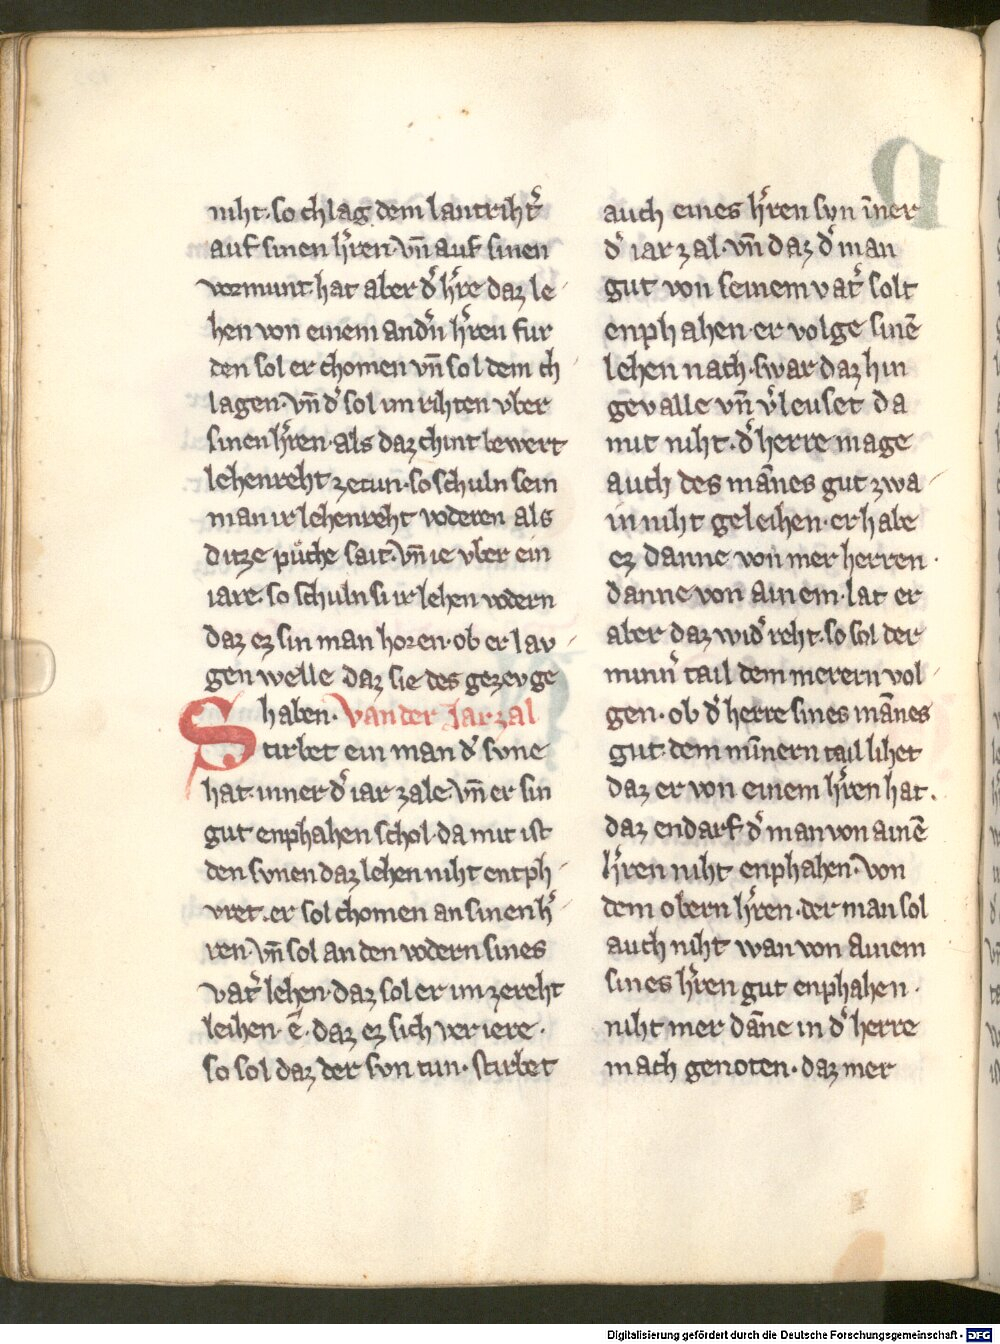 niht·so chlag dem lantriht᷑
auf sinen h᷑ren·vn̄ auf sinen
vormunt·hat aber d᷑ h᷑re daz le
hen von einem and᷑n h᷑ren fur
den sol er chomen vn̄ sol dem ch
lagen·vn̄ d᷑ sol im rihten vber
sinen h᷑ren·als daz chint bewert
lehenreht zetun·so schuln sein
man ir lehenreht voderen als
ditze puͦche sait·vn̄ ie vber ein
iare·so schuln si ir lehen vodern
daz ez sin man horen·ob er lav
gen welle daz sie des gezevge
haben· Van der Jarzal
Stirbet ein man d᷑ svne
hat·inner d᷑ iar zale·vn̄ er sin
gut enphahen schol·da mit ist
den svnen daz lehen niht entph
vret·er sol chomen an sinen h᷑
ren·vn̄ sol an den vodern sines
vat᷑ lehen·daz sol er im zereht
leihen·ē·daz ez sich veriere·
so sol daz der svn tun·stirbet
auch eines h᷑ren svn īner
d᷑ iar zal·vn̄ daz d᷑ man
gut von seinem vat᷑ solt
enphahen·er volge sinē
lehen nach·swar daz hin
gevalle vn̄ v᷑leuset da
mit niht·d᷑ herre mage
auch des mānes gut zwa
in niht geleihen·er habe
ez danne von mer herren·
danne von ainem·lat er
aber daz wid᷑ reht·so sol der
minn᷑ tail dem merern vol
gen·ob d᷑ herre sines mānes
gut·dem mīnern tail lihet
daz er von einem h᷑ren hat·
daz endarf d᷑ man von ainē
h᷑ren niht enphahen·von
dem obern h᷑ren·der man sol
auch niht wan von ainem
sines h᷑ren gut enphahen·
niht mer dāne in d᷑ herre
mach genoten·daz mer
Digitalisierung gefördert durch die Deutsche Forschungsgemeinschaft - DFG